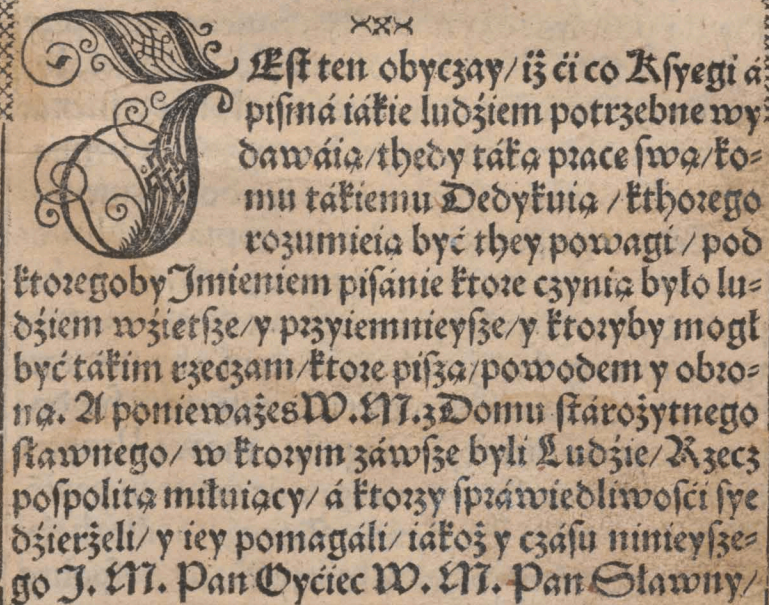 JEst ten obyczay/ iż ći co Ksyęgi á
pismá iákie ludźiem potrzebne wy
dawáią/thedy táką prace swą/ko⸗
mu tákiemu Dedykuią /kthorego
rozumieią być they powagi / pod
ktoregoby Jmieniem pisánie ktore czynią było lu⸗
dźiem wźietsze/y przyiemnieysze/y ktoryby mogł
być tákim rzeczam/ktore piszą/powodem y obro⸗
ną. A ponieważes W.M.z Domu stárożytnego
sławnego/ w ktorym záwsze byli Ludźie/ Rzecz
pospolitą miłuiący/ á ktorzy spráwiedliwosći sye
dźierżeli/ y iey pomagáli/ iákoż y czásu ninieysze⸗
go J. M. Pan Oyćiec W. M. Pan Sławny/